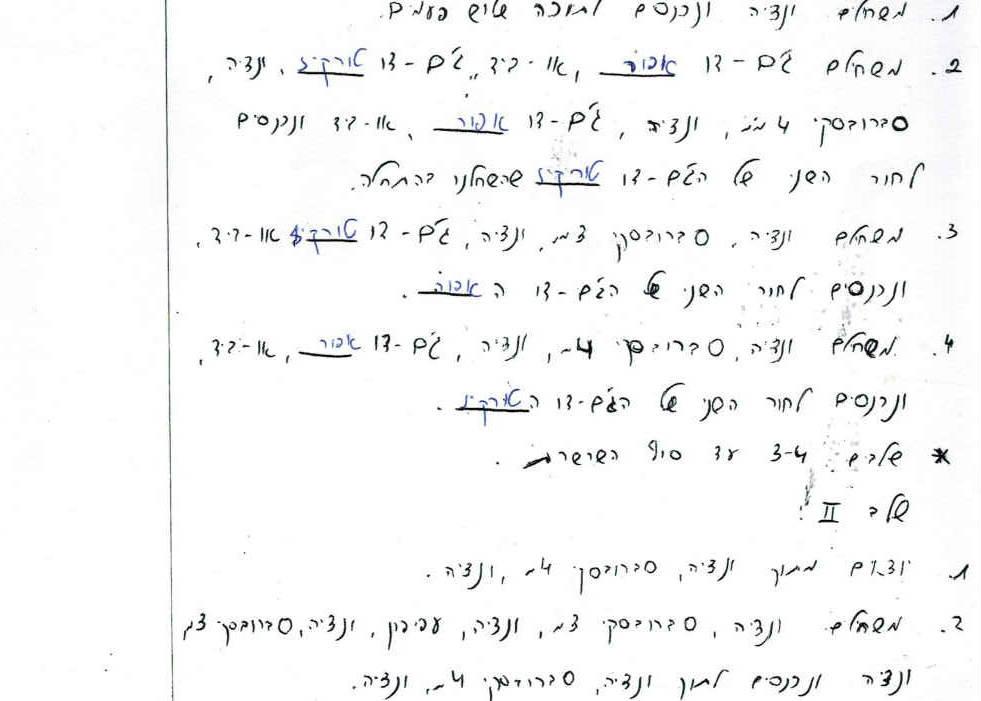 1. משחילים ונציה ונכנסים לתוכה שלוש פעמים.
2. משחילים ג'ם-דו אפור, או-ביד, ג'ם-דו טורקיז, ונציה,
סברובסקי 4 ממ, ונציה, ג'ם-דו אפור, או-ביד ונכנסים
לחור השני של הג'ם-דו טורקיז שהשחלנו בהתחלה.
3. משחילים ונציה, סברובסקי 3מ, ונציה, ג'ם-דו טורקיז או-ביד,
ונכנסים לחור השני של הג'ם-דו ה אפור.
4. משחילים ונציה, סברובסקי 4מ, ונציה, ג'ם-דו אפור, או-ביד,
ונכנסים לחור השני של הג'ם-דו הטורקיז.
* שלבים 3-4 עד סוף השרשרת.
שלב II:
1. יוצאים מתוך ונציה, סברובסקי 4מ, ונציה.
2. משחילים ונציה, סברובסקי 3מ, ונציה, עפיפון, ונציה, סברובסקי 3מ,
ונציה ונכנסים לתוך ונציה, סברובסקי 4מ, ונציה.